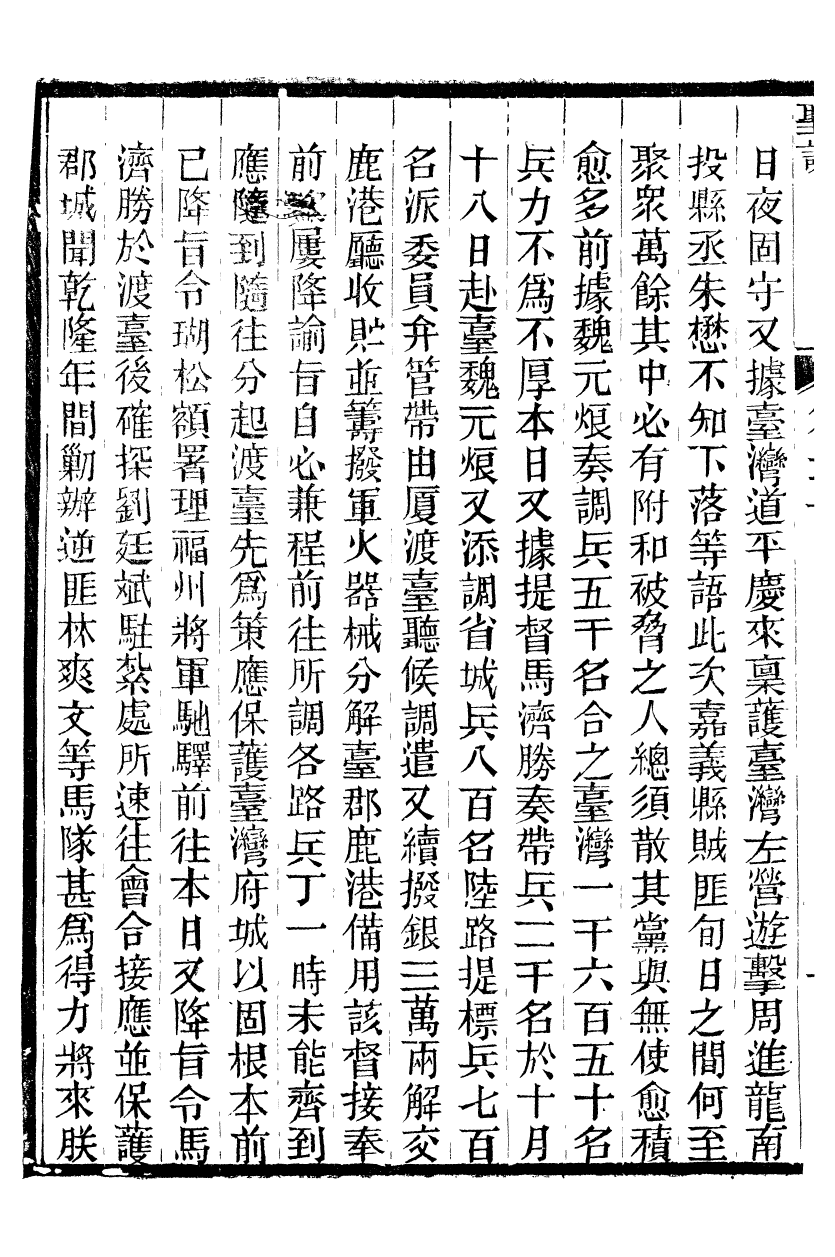 日夜固守又據臺灣道平慶來稟護臺灣左營遊擊周進龍南
投縣丞朱懋不知下落等語此次嘉義縣賊匪旬日之間何至
聚衆萬餘其中必有附和被脅之人總須散其黨與無使愈積
愈多前據魏元烺奏調兵五千名合之臺灣一千六百五十名
兵力不爲不厚本日又據提督馬濟勝奏帶兵二千名於十月
十八日赴臺魏元烺又添調省城兵八百名陸路提標兵七百
名派委員弁管帶由厦渡臺聽候調遣又續撥銀三萬兩解交
鹿港廳收貯並籌撥軍火器械分解臺郡鹿港備用該督接奉
前屢降諭旨自必兼程前往所調各路兵丁一時未能齊到
應隨到隨往分起渡臺先爲策應保護臺灣府城以固根本前
已降旨令瑚松額署理福州將軍馳驛前往本日又降旨令馬
濟勝於渡臺後確探劉廷斌駐紮處所速往會合接應並保護
郡城聞乾隆年間勦辦逆匪林爽文等馬隊甚爲得力將來朕